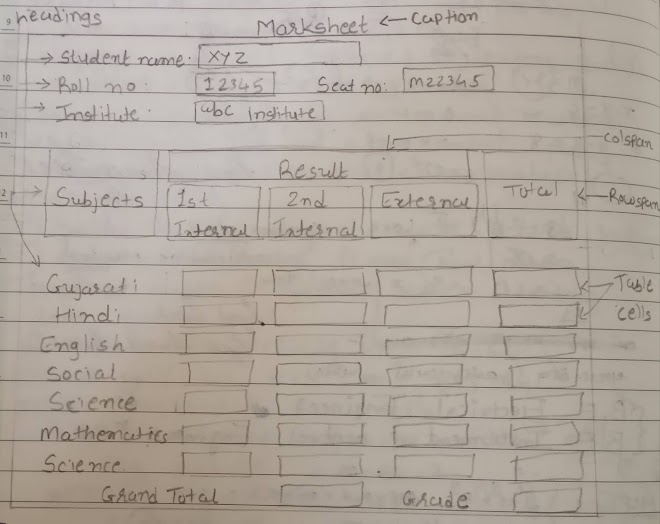 9 headings
Marksheet ← Caption
→ Student name: XYZ
10 → Roll no: 12345 Seat no: M22345
→ Institute: abc institute
11
Colspan
Result
Subjects 1st Internal 2nd Internal External Total ← Rowspan
Gujarati ← Table cells
Hindi
English
Social
Science
Mathematics
Science
Grand Total Grade